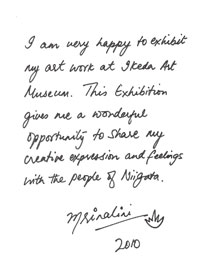 I am very happy to exhibit
my art work at Ikeda Art
Museum. This Exhibition
gives me a wonderful
opportunity to share my
creative expression and feelings
with the people of Niigata.
Mrinalini
2010